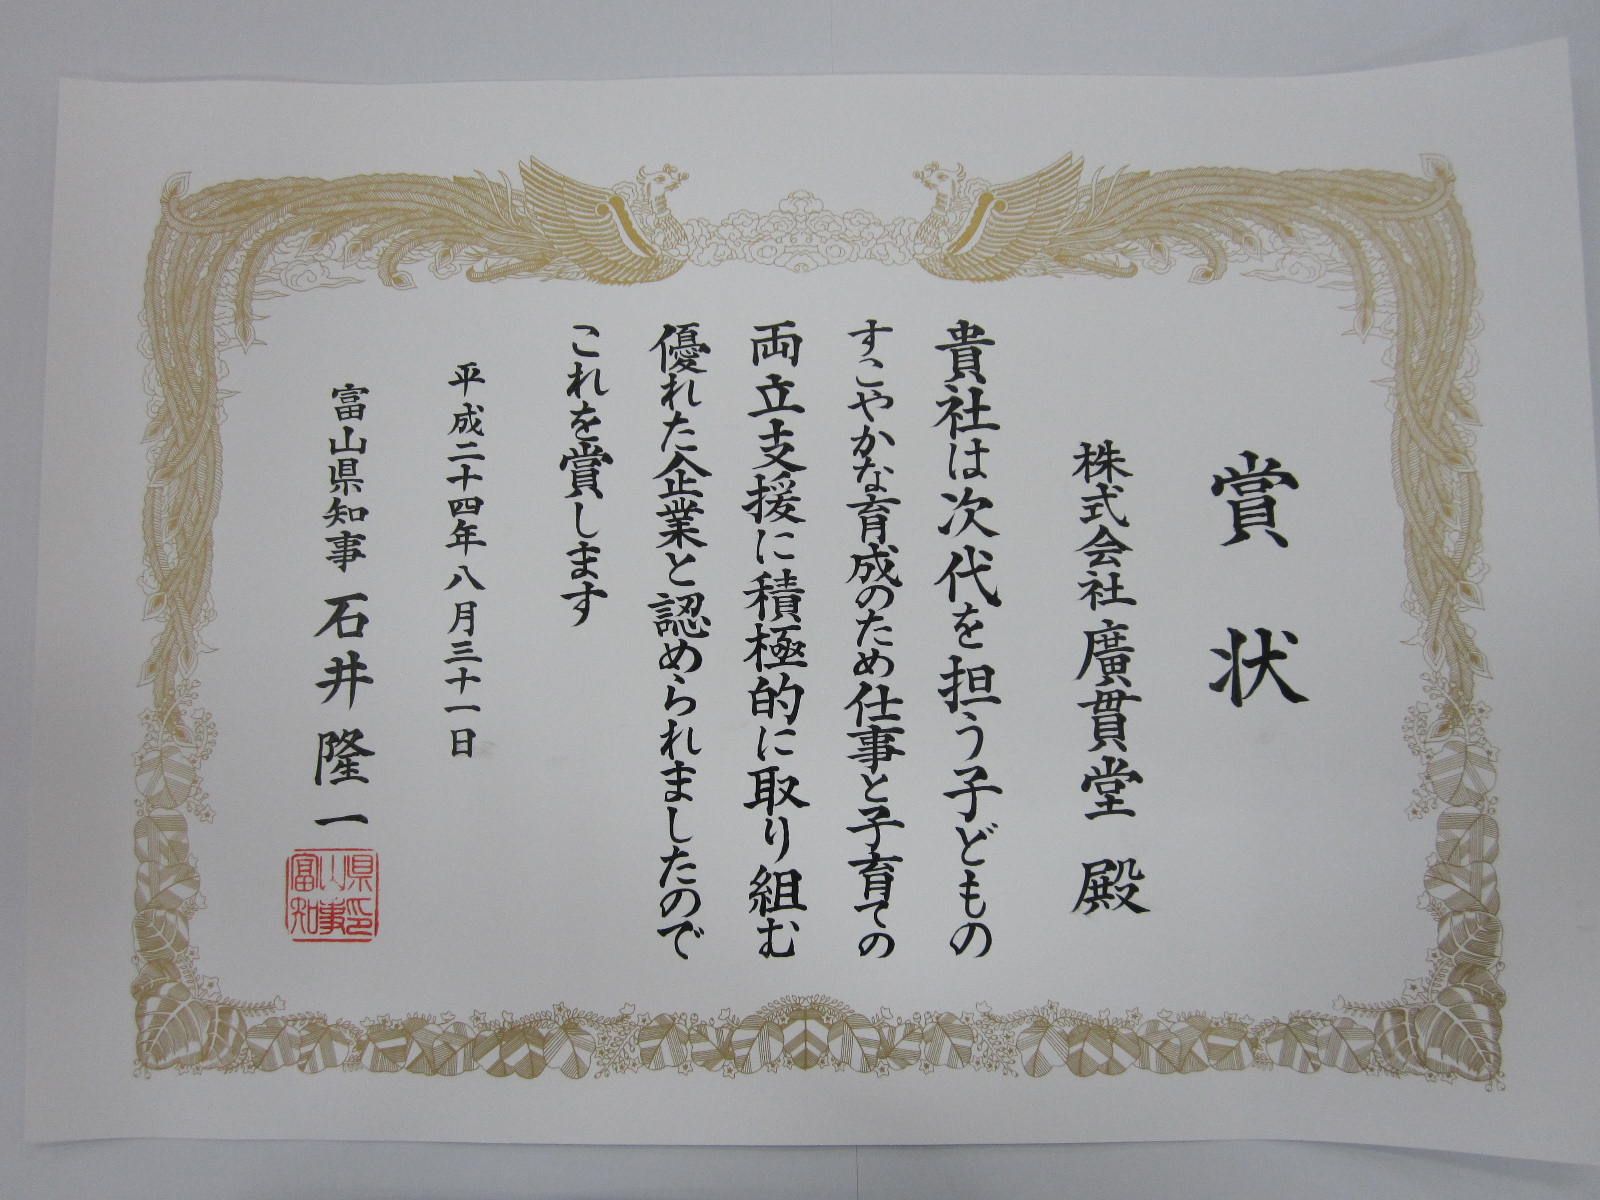 賞状
株式会社廣貫堂 殿
貴社は次代を担う子どもの
すこやかな育成のため仕事と子育ての
両立支援に積極的に取り組む
優れた企業と認められましたので
これを賞します
平成二十四年八月三十一日
富山県知事 石井隆一
富山県知事印